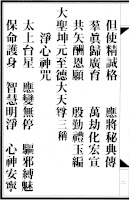 但使精誠格　應將秘典傳
羣眞歸廣育　萬劫化宏宣
共矢酬恩願　殷勤禮玉編
大聖坤元至德大天尊三稱
淨心神咒
太上台星　應變無停　驅邪縛魅
保命護身　智慧明淨　心神安寧